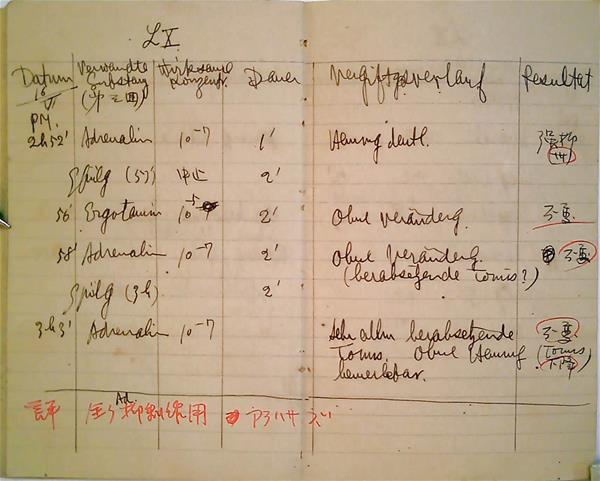 LX
Datum Verwandte Substanz (第三回) Wirksame Konzentr. Dauer Vergiftgsverlauf Resultat
16/VI
PM.
2h52' Adrenalin 10-7 1' Hemung deutl.
Spülg (57') 中止 2'
56' Ergotamin 10-5 2' Ohne Veränderg. 不変
58' Adrenalin 10-7 2' Ohne Veränderg. 不変
(herabsetzende Tonus?)
Spülg (3h) 2'
3h3' Adrenalin 10-7 Sehr allm herabsetzende 不変
Tonus. Ohne Hemung (Tonus
bemerkbar. 下降)
Ad.
評 抑制作用 アラハサズ